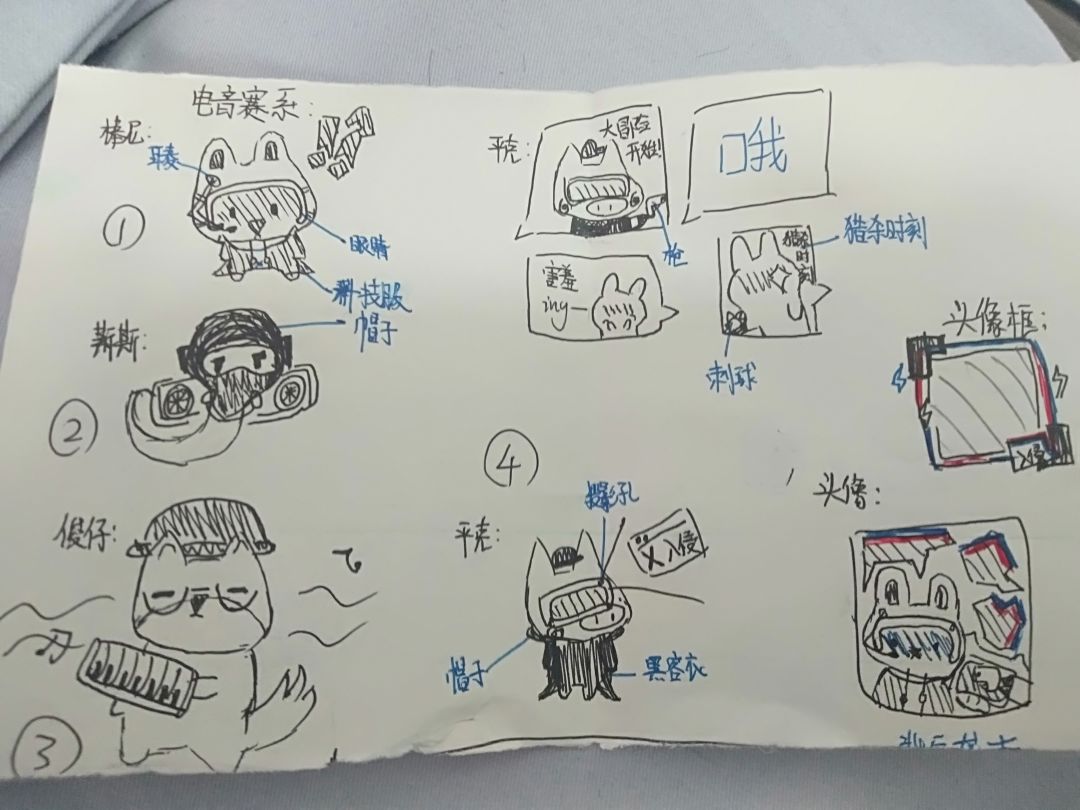 电音赛系:
棒尼:
耳麦
①
眼睛
科技服
帽子
②
傻仔:
③
平克:
大冒险
开始!
口哦
枪
害羞
ing—
猎杀
时
刻
猎杀时刻
刺球
④
平克:
摄影孔
X入侵
帽子
黑客衣
头像框:
入侵
头像: